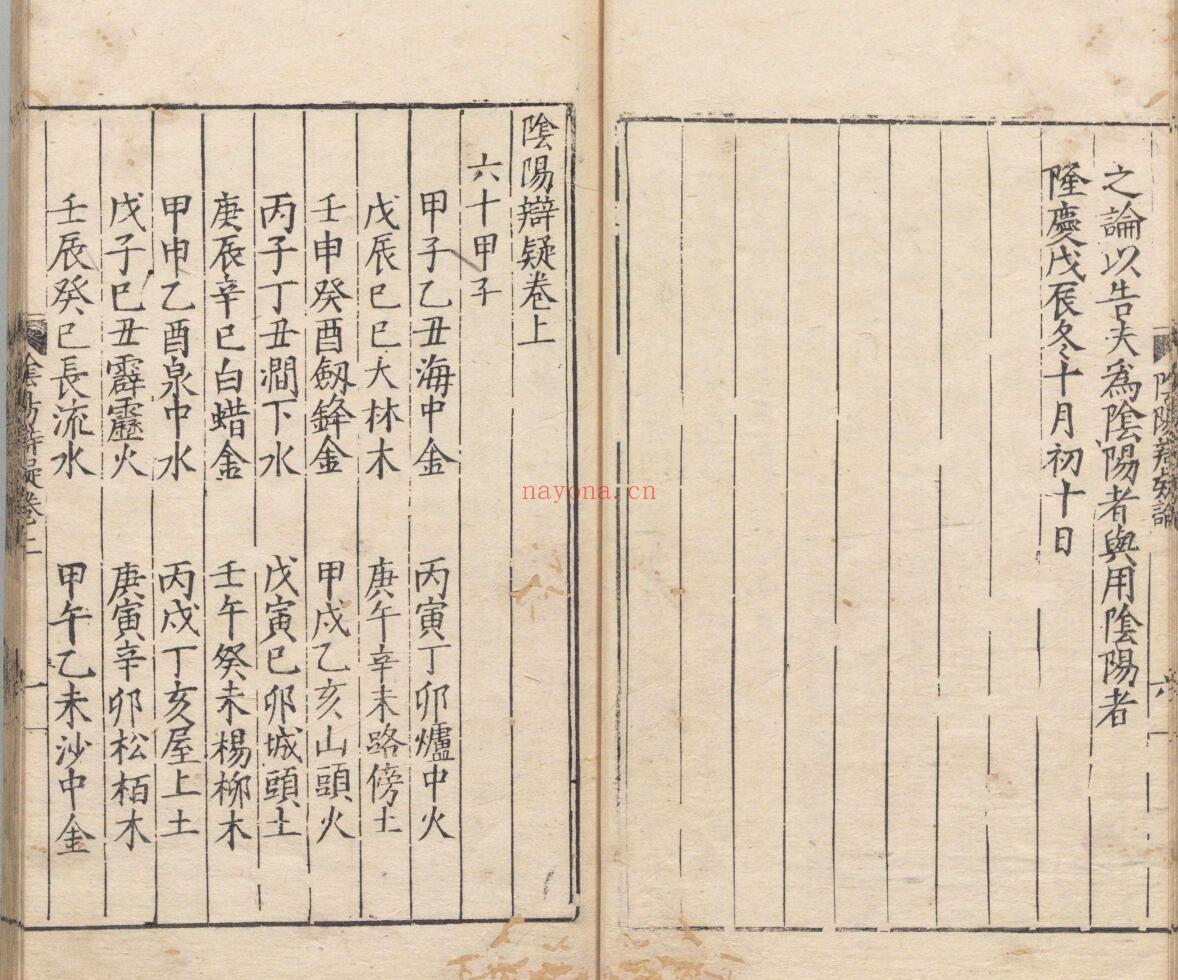 之論以告夫爲陰陽者與用陰陽者
隆慶戊辰冬十月初十日
陰陽辯疑論
六
陰陽辯疑卷上
六十甲子
甲子乙丑海中金　丙寅丁卯爐中火
戊辰巳巳大林木　庚午辛未路傍土
壬申癸酉劔鋒金　甲戍乙亥山頭火
丙子丁丑澗下水　戊寅巳卯城頭土
庚辰辛巳白蜡金　壬午癸未楊柳木
甲申乙酉泉中水　丙戍丁亥屋上土
戊子巳丑霹靂火　庚寅辛卯松栢木
壬辰癸巳長流水　甲午乙未沙中金
陰陽辯疑卷上
一
nayona.cn